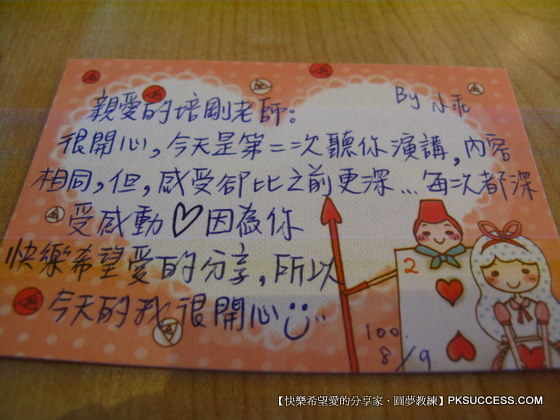 親愛的培剛老師：
By 小乖
很開心，今天是第二次聽你演講，內容
相同，但，感受卻比之前更深...每次都深
受感動♡因為你
快樂希望愛的分享，所以
今天的我很開心
2
100
8/9
【快樂希望愛的分享家‧圓夢教練】PKSUCCESS.COM